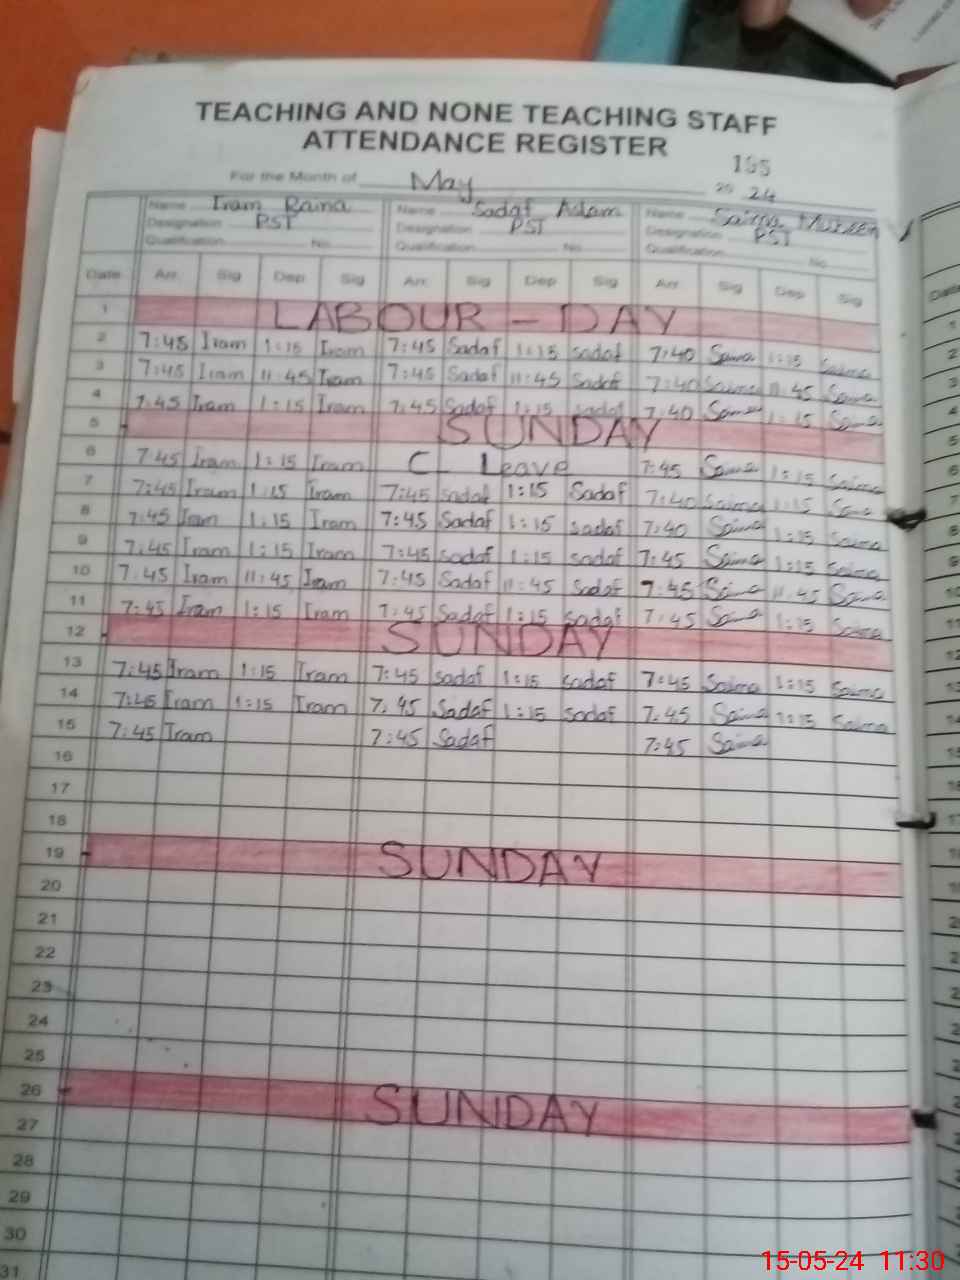 TEACHING AND NONE TEACHING STAFF
ATTENDANCE REGISTER
195
For the Month of May 20 24
Name Iram Raina Name Sadaf Aslam Name Saima
Designation PST Designation PST Designation PST
Qualification No Qualification No Qualification No
Date Arr. Sig Dep Sig Arr. Sig Dep Sig Arr. Sig Dep Sig
1 LABOUR - DAY
2 7:45 Iram 1:15 Iram 7:45 Sadaf 1:15 sadaf 7:40 Saima 1:15 Saima
3 7:45 Iram 11:45 Iram 7:45 Sadaf 11:45 Sadaf 7:40 Saima 11:45 Saima
4 7:45 Iram 1:15 Iram 7:45 Sadaf 1:15 sadaf 7:40 Saima 1:15 Saima
5 SUNDAY
6 7:45 Iram 1:15 Iram C_ Leave 7:45 Saima 1:15 Saima
7 7:45 Iram 1:15 Iram 7:45 Sadaf 1:15 Sadaf 7:40 Saima 1:15 Saima
8 7:45 Iram 1:15 Iram 7:45 Sadaf 1:15 sadaf 7:40 Saima 1:15 Saima
9 7:45 Iram 1:15 Iram 7:45 sadaf 1:15 sadaf 7:45 Saima 1:15 Saima
10 7:45 Iram 11:45 Iram 7:45 Sadaf 11:45 Sadaf 7:45 Saima 11:45 Saima
11 7:45 Iram 1:15 Iram 7:45 Sadaf 1:15 sadaf 7:45 Saima 1:15 Saima
12 SUNDAY
13 7:45 Iram 1:15 Iram 7:45 sadaf 1:15 sadaf 7:45 Saima 1:15 Saima
14 7:45 Iram 1:15 Iram 7:45 Sadaf 1:15 sadaf 7:45 Saima 1:15 Saima
15 7:45 Iram 7:45 Sadaf 7:45 Saima
16
17
18
19 SUNDAY
20
21
22
23
24
25
26 SUNDAY
27
28
29
30
31
15-05-24 11:30